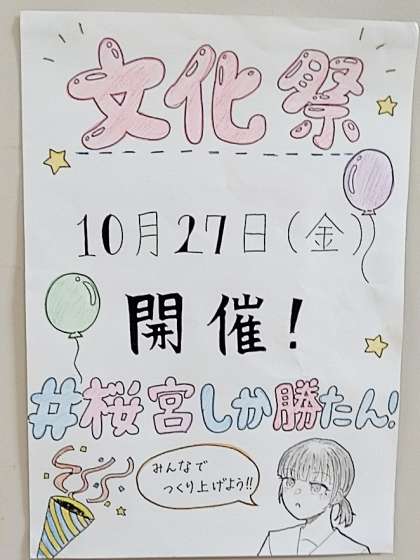 文化祭
10月27日(金)
開催!
#桜宮しか勝たん!
みんなで
つくり上げよう!!